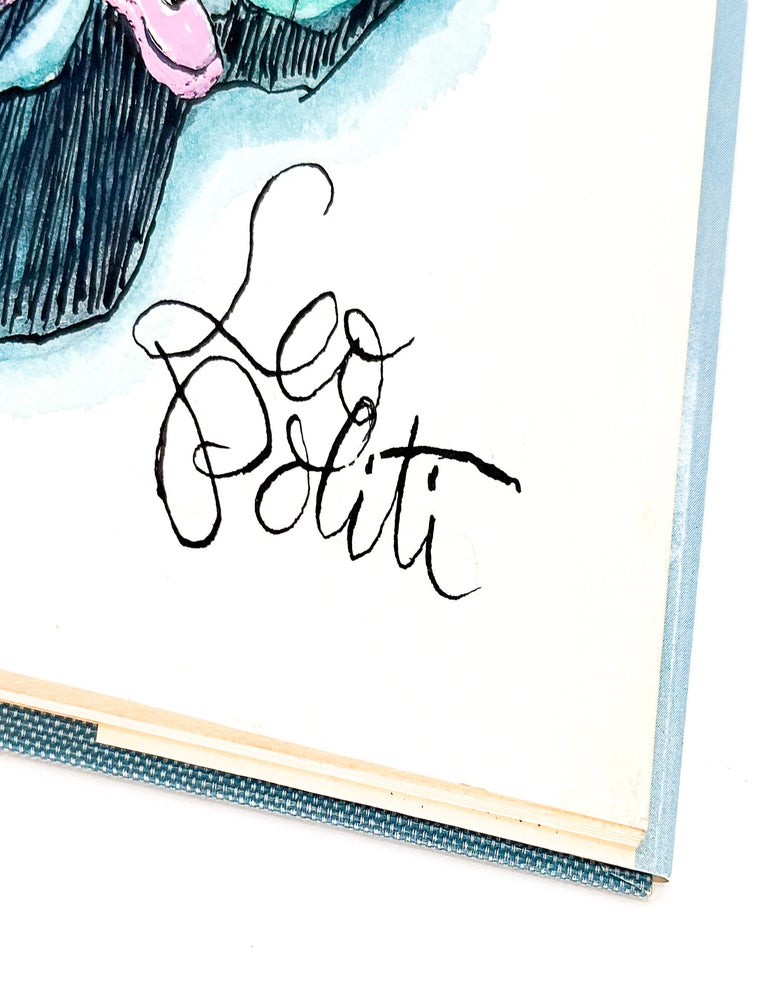 Leo
Politi